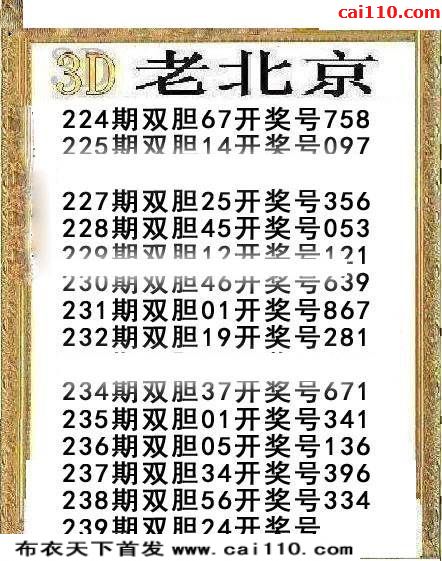 cai110.com
3D 老北京
224期双胆67开奖号758
225期双胆14开奖号097
227期双胆25开奖号356
228期双胆45开奖号053
229期双胆12开奖号121
230期双胆46开奖号639
231期双胆01开奖号867
232期双胆19开奖号281
234期双胆37开奖号671
235期双胆01开奖号341
236期双胆05开奖号136
237期双胆34开奖号396
238期双胆56开奖号334
239期双胆24开奖号
布衣天下首发 www.cai110.com